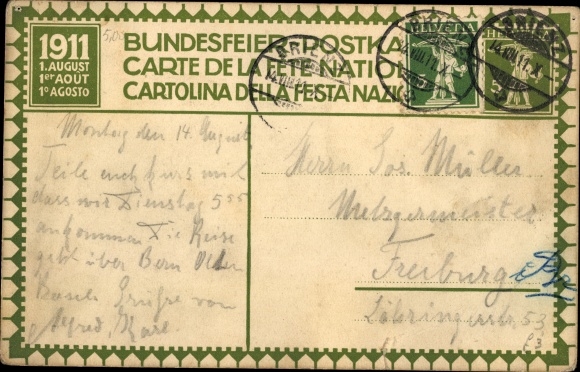 1911
1. AUGUST
1er AOÛT
1º AGOSTO
5,00
BUNDESFEIER POSTKA
CARTE DE LA FÊTE NATION
CARTOLINA DELLA FESTA NAZIO
BRIENZ
14.VIII.11.X
HELVETIA
5
BRIENZ
14.VIII.11.X
BRIENZ
14.VIII.11.X
Montag den 14. August
Teile euch kurz mit
dass wir Dienstag 5 55
ankommen Die Reise
geht über Bern Olten
Basel Grüsse von
Alfred, Karl.
Herrn Jos. Müller
Metzgermeister
Freiburg
Zähringerstr. 53